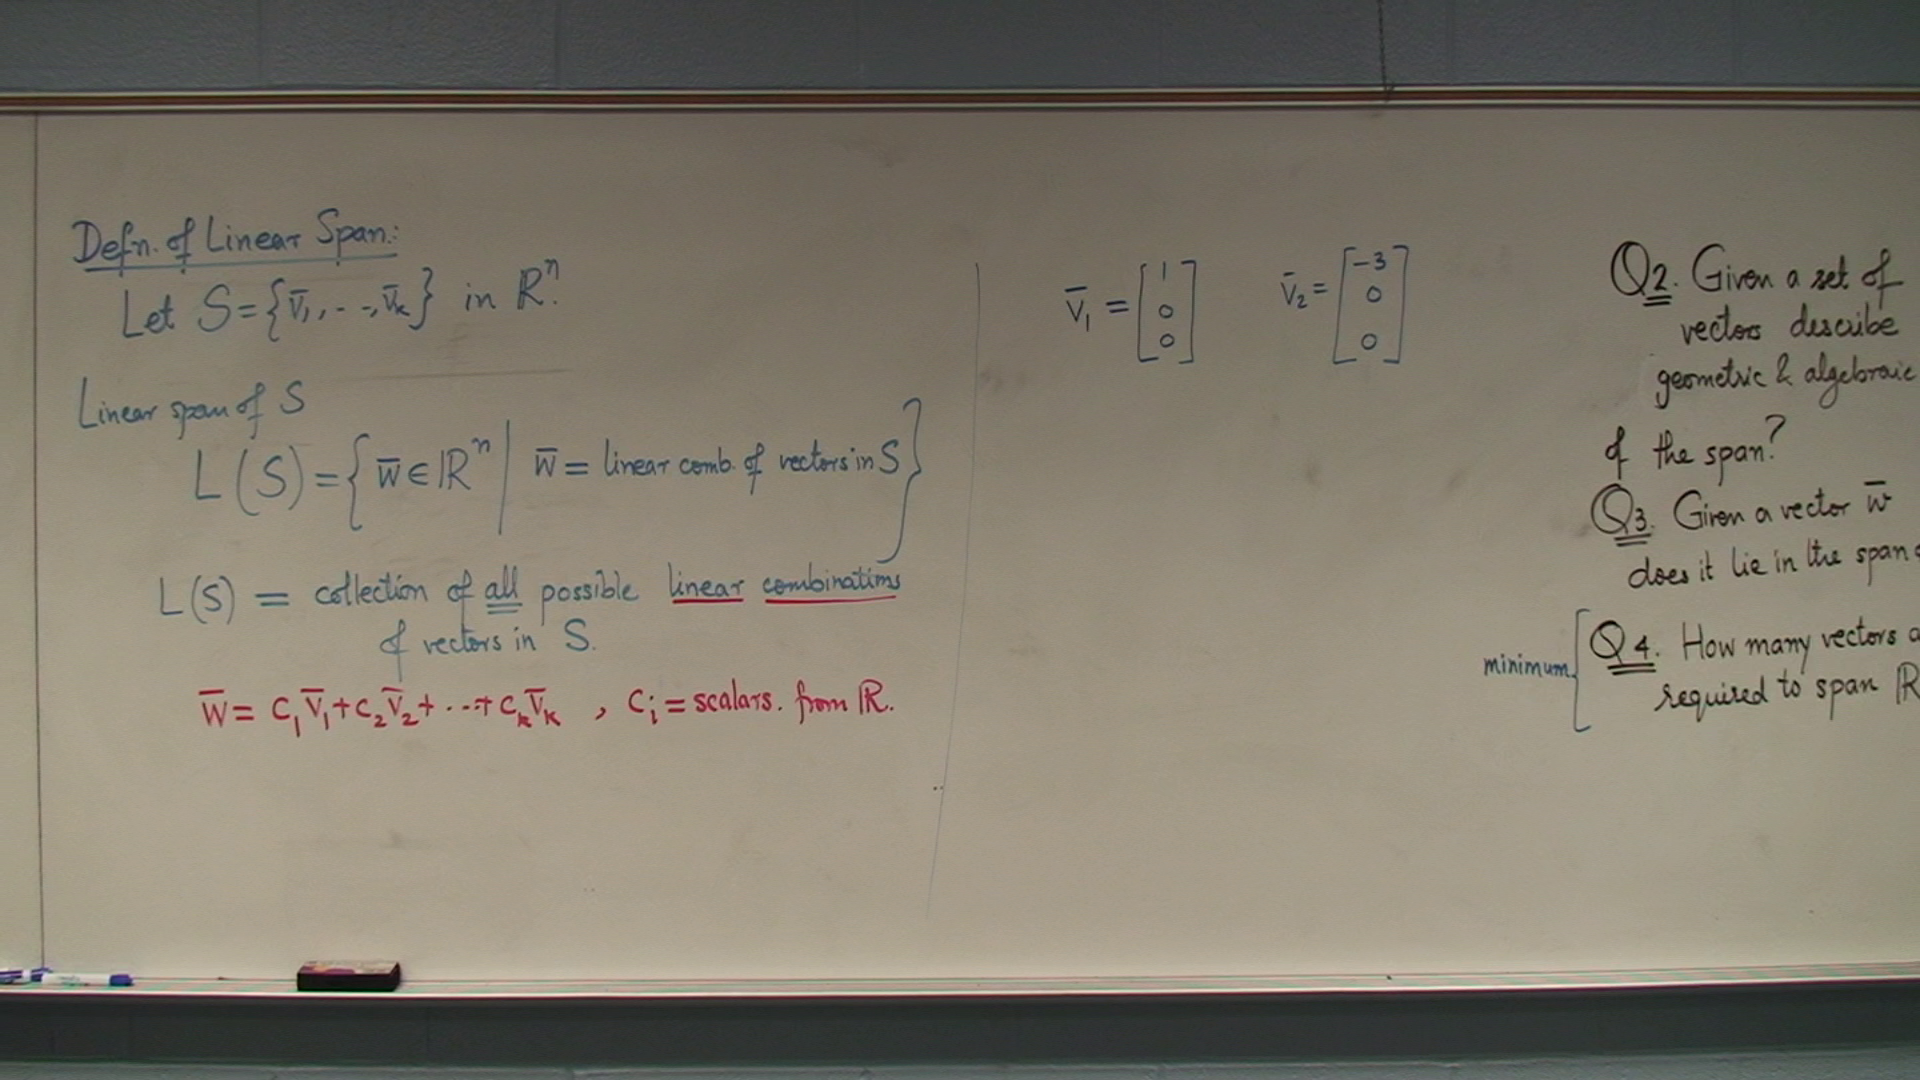 Defn. of Linear Span:
Let S = {v̄₁, . . ., v̄ₖ} in ℝⁿ.
Linear span of S
L(S) = { w̄ ∈ ℝⁿ | w̄ = linear comb. of vectors in S }
L(S) = collection of all possible linear combinations
of vectors in S.
w̄ = c₁v̄₁ + c₂v̄₂ + . . . + cₖv̄ₖ , cᵢ = scalars. from ℝ.
v̄₁ = [1 0 0] v̄₂ = [-3 0 0]
Q2. Given a set of
vectors describe
geometric & algebraic
of the span?
Q3. Given a vector w̄
does it lie in the span
minimum [ Q4. How many vectors
required to span ℝ